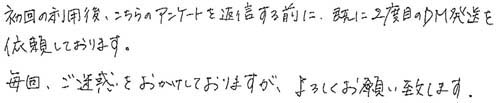 初回の利用後、こちらのアンケートを返信する前に、既に2度目のDM発送を
依頼しております。
毎回、ご迷惑をおかけしておりますが、よろしくお願い致します.